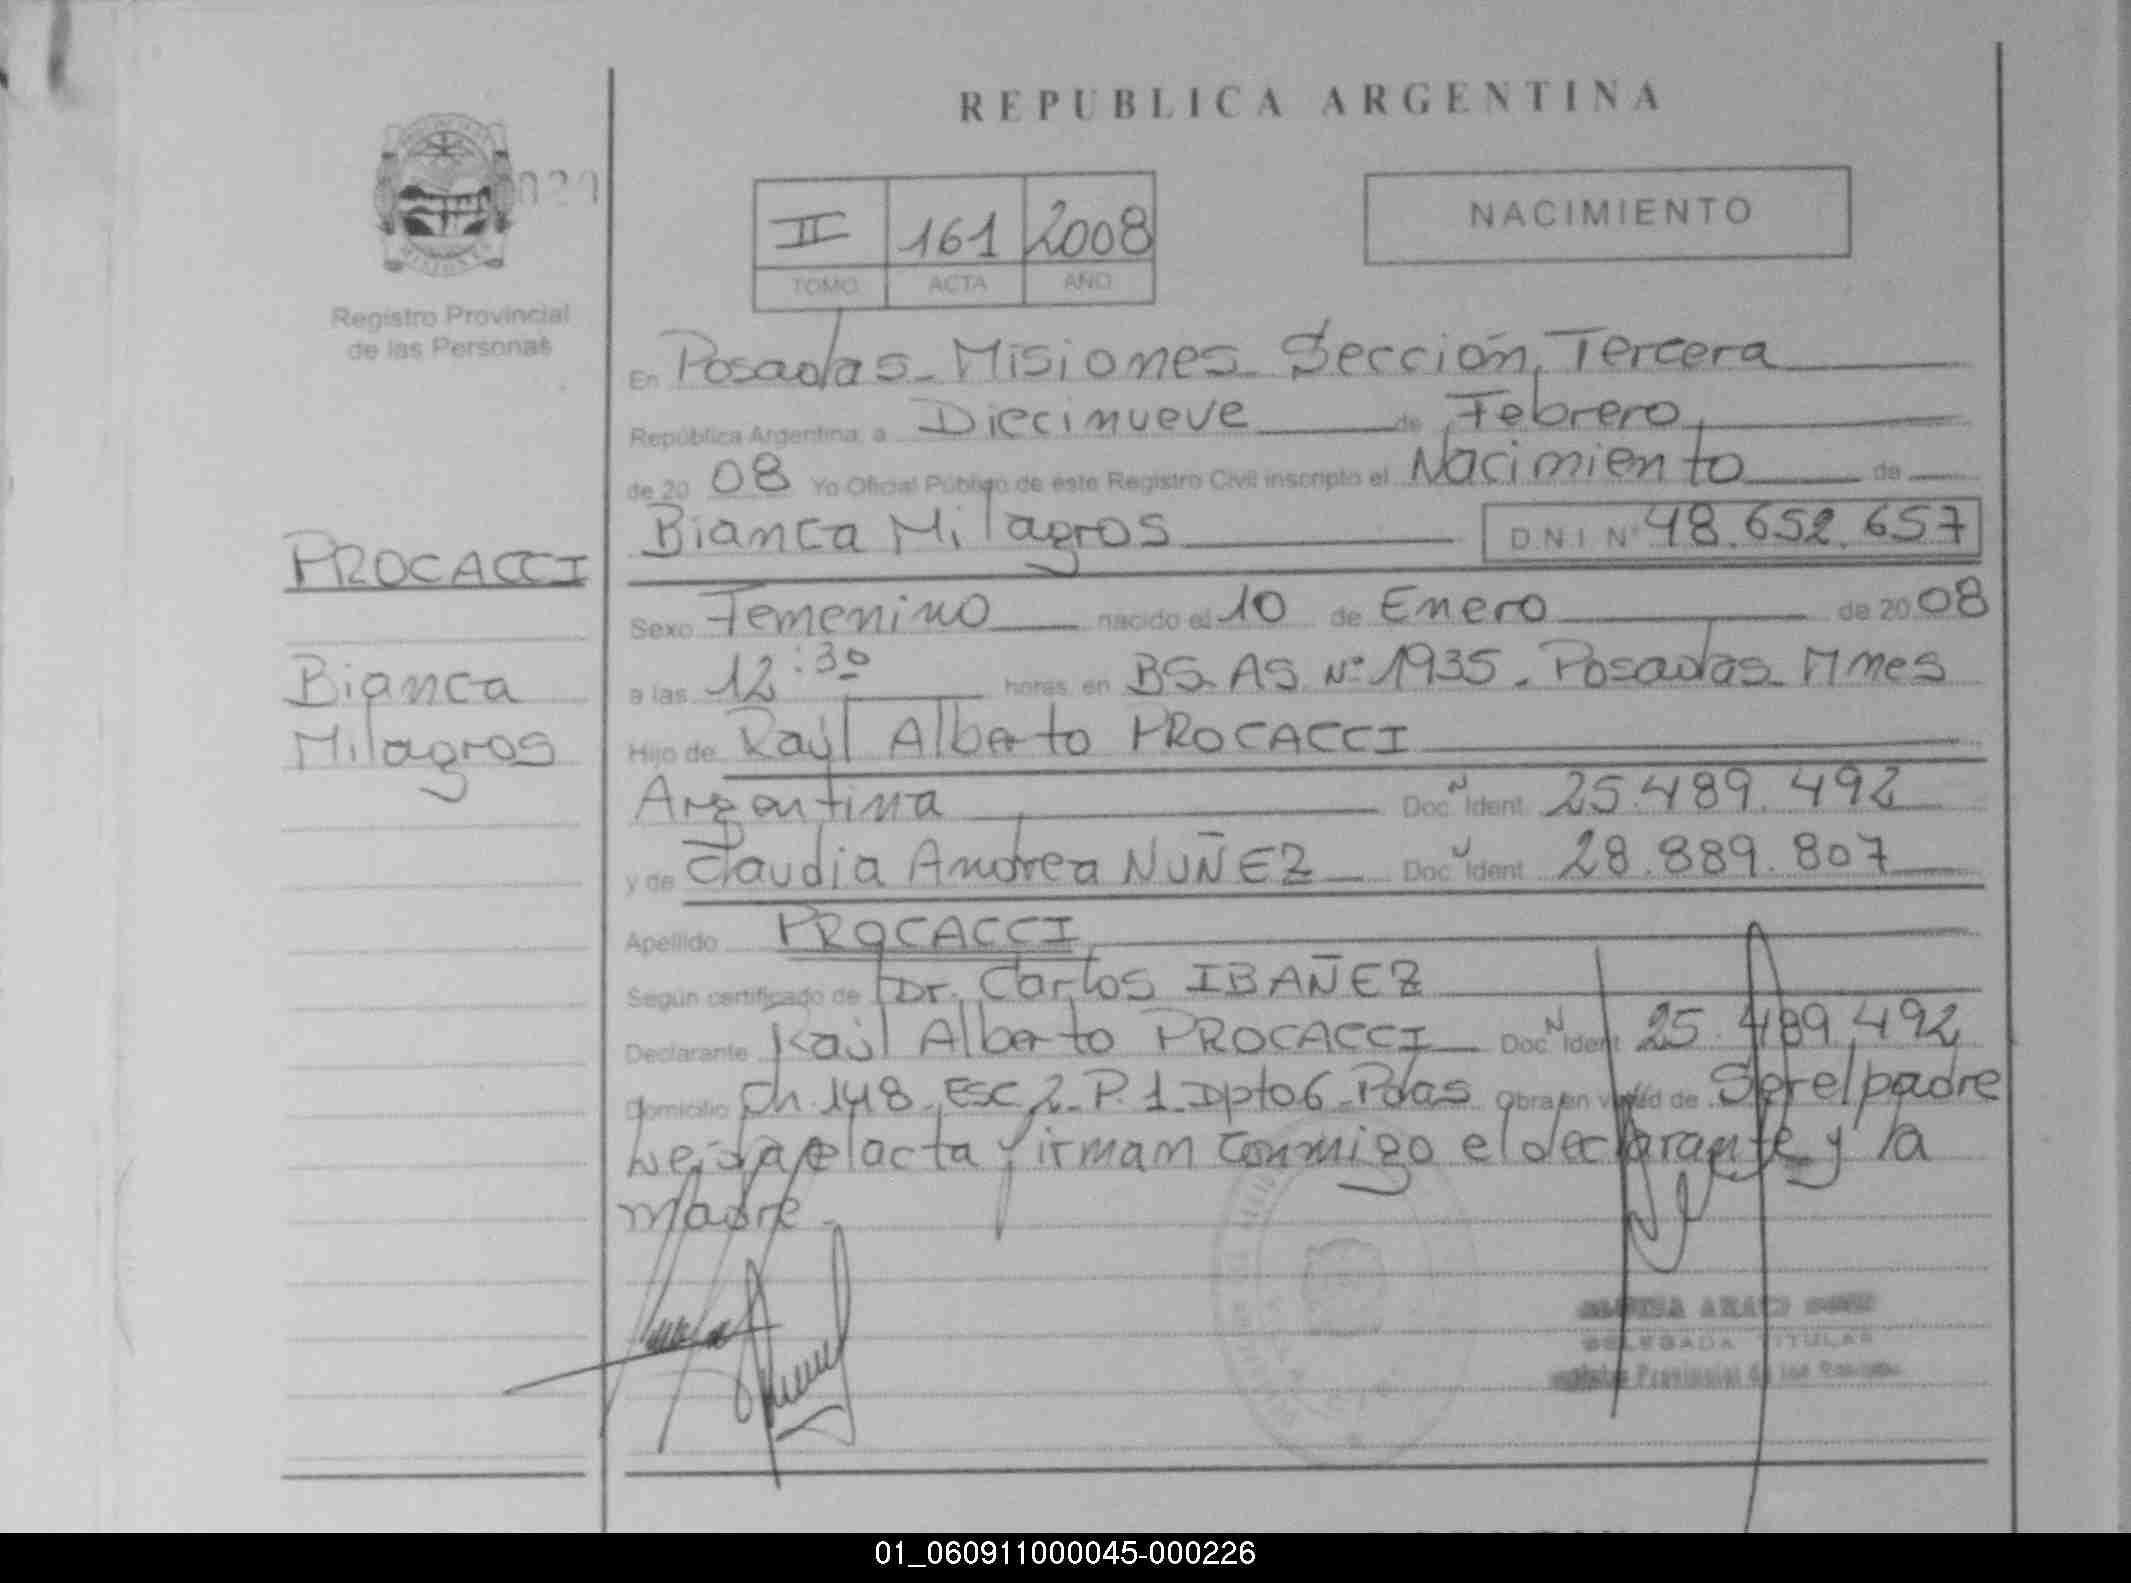 REPUBLICA ARGENTINA
II 161 2008
TOMO ACTA AÑO
NACIMIENTO
Registro Provincial
de las Personas
PROCACCI
Bianca
Milagros
En Posadas - Misiones - Sección Tercera
República Argentina, a Diecinueve de Febrero
de 20 08 Yo Oficial Público de este Registro Civil inscripto el Nacimiento de
Bianca Milagros D N I N° 48.652.657
Sexo Femenino nacido el 10 de Enero de 20 08
a las 12:30 horas en BS. AS. N° 1935 - Posadas - Mnes
Hijo de Raúl Alberto PROCACCI
Argentina Doc N Ident. 25.489.492
y de Claudia Andrea NUÑEZ Doc Ident. 28.889.807
Apellido PROCACCI
Según certificado de Dr. Carlos IBAÑEZ
Declarante Raúl Alberto PROCACCI Doc N Ident 25.489.492
Domicilio Ch. 148 - ESC 2 - P. 1 - Dpto 6 - Pdas Obra en virtud de Ser el padre
Leida el acta firman conmigo el declarante y la
madre -
DELEGADA TITULAR
Provincial de las Personas
01_060911000045-000226